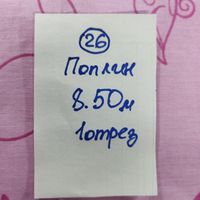 26
Поплин
8.50м
1отрез